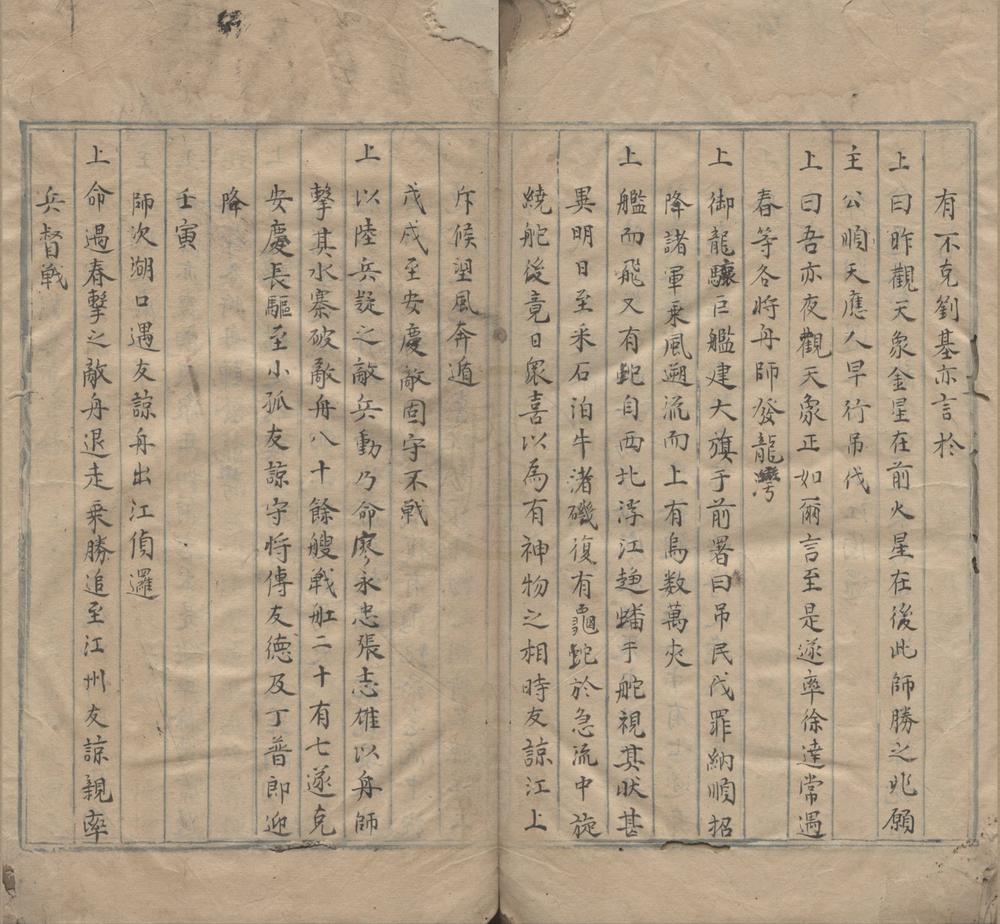 有不克劉基亦言於
上曰昨觀天象金星在前火星在後此師勝之兆願
主公順天應人早行吊伐
上曰吾亦夜觀天象正如爾言至是遂率徐達常遇
春等各將舟師發龍灣
上御龍驤巨艦建大旗于前署曰吊民伐罪納順招
降諸軍乗風遡流而上有鳥数萬夾
上艦而飛又有蛇自西北浮江趨蟠于舵視其狀甚
異明日至采石泊牛渚磯復有龜蛇於急流中旋
繞舵後竟日衆喜以為有神物之相時友諒江上
斥候望風奔遁
戊戌至安慶敵固守不戰
上以陸兵疑之敵兵動乃命廖永忠張志雄以舟師
擊其水寨破敵舟八十餘艘戰舡二十有七遂克
安慶長驅至小孤友諒守將傅友德及丁普郎迎
降
壬寅
師次湖口遇友諒舟出江偵邏
上命遇春擊之敵舟退走乗勝追至江州友諒親率
兵督戰